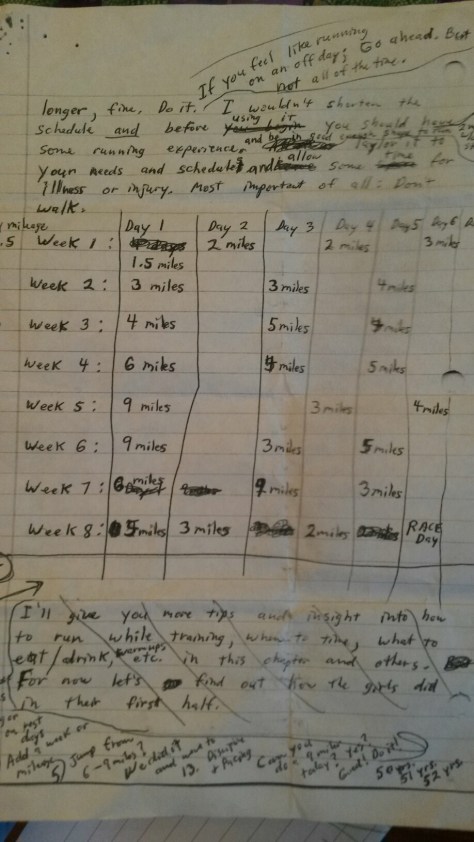 If you feel like running
on an off day; Go ahead. But
not all of the time.
longer, fine. Do it. I wouldn't shorten the
schedule and before using it you should have
some running experience and be in good enough shape to Taylor it to
your needs and schedules and allow some time for
Illness or injury. Most important of all: Don't
walk.
mileage Day 1 Day 2 Day 3 Day 4 Day 5 Day 6
.5 Week 1: 2 miles 2 miles 3 miles
1.5 miles
Week 2: 3 miles 3 miles 4 miles
Week 3: 4 miles 5 miles 4 miles
Week 4: 6 miles 4 miles 5 miles
Week 5: 9 miles 3 miles 4 miles
Week 6: 9 miles 3 miles 5 miles
Week 7: 6 miles 9 miles 3 miles
Week 8: 5 miles 3 miles 2 miles RACE
Day
I'll give you more tips and insight into how
to run while training, when to time, what to
eat/drink, warmups etc. in this chapter and others.
For now let's find out how the girls did
in their first half.
on rest
days
Add a week or
mileage
Jump from
6-9 miles?
We did it
and want to
13.
+ Pacing
Can you
do a 9 miler
today? Yes?
Good! Do it!
50 yrs.
51 yrs.
52 yrs.